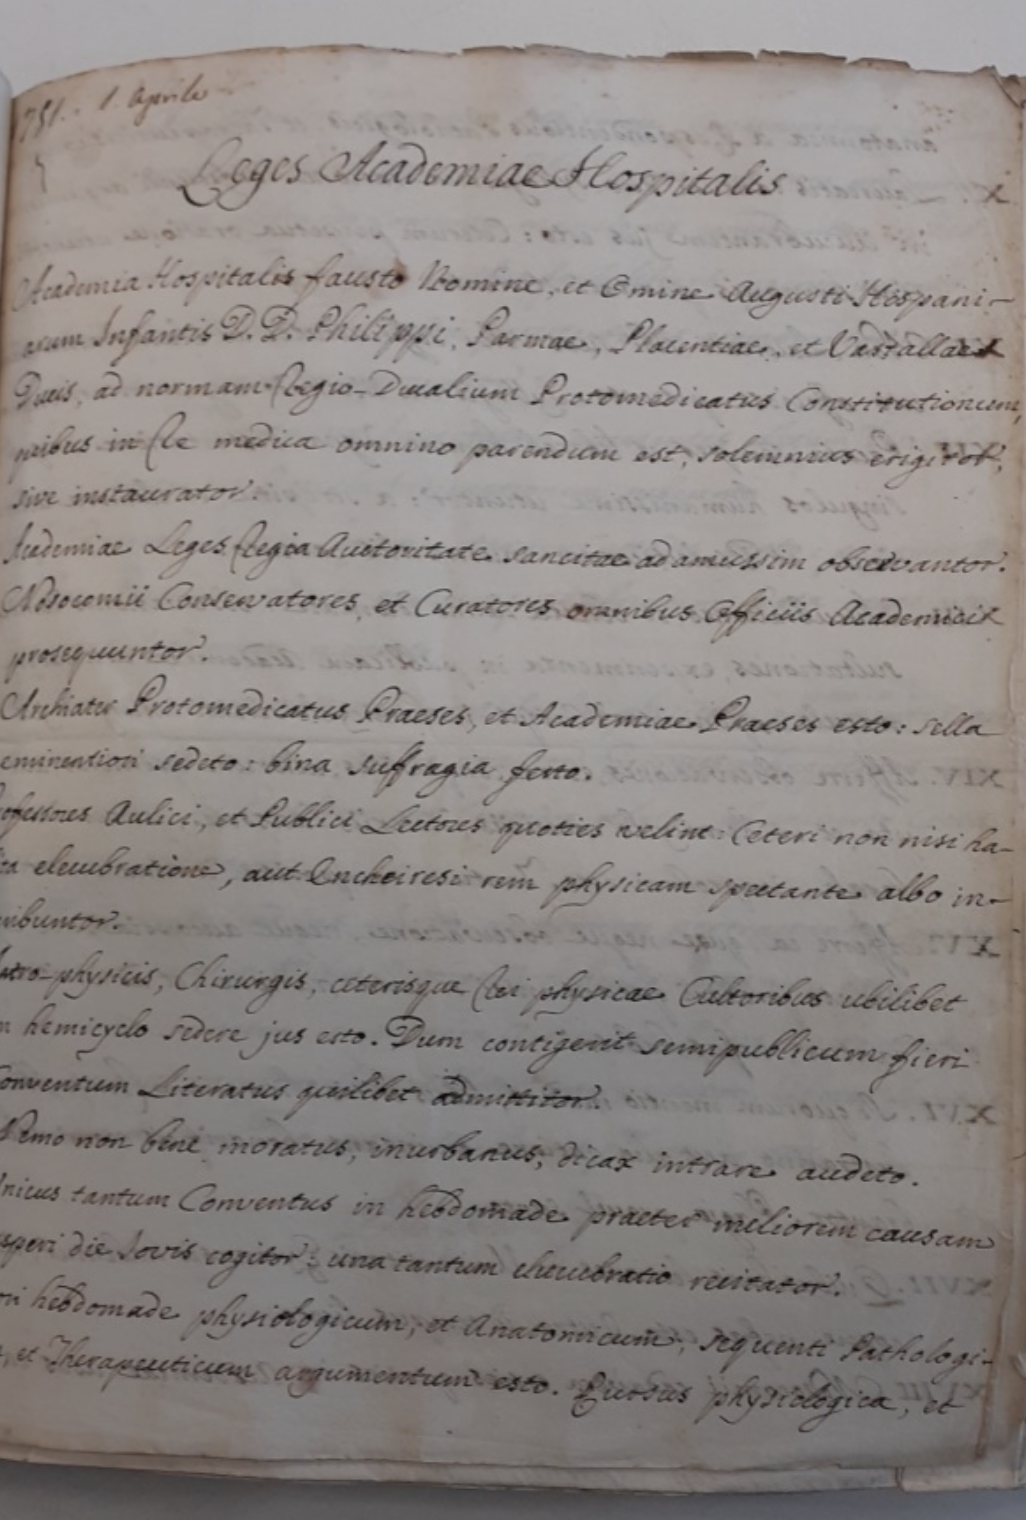 751. 1. Aprile
Leges Academiae Hospitalis
Academia Hospitalis fausto Nomine, et Omine Augusti Hispani-
arum Infantis D. D. Philippi, Parmae, Placentiae, et Vastallae
Ducis, ad normam Regio-Ducalium Protomedicatus Constitutionum,
quibus in Re medica omnino parendum est, solemnius erigitor,
sive instaurator
Academiae Leges Regia Auctoritate sancitae ad amussim observantor.
Nosocomii Conservatores, et Curatores omnibus Officiis Academicis
prosequuntor.
Archiater Protomedicatus Praeses, et Academiae Praeses esto: sella
eminentiori sedeto: bina suffragia ferto.
ofessores Aulici, et Publici Lectores quoties velint: Ceteri non nisi ha-
ita elucubratione, aut Encheiresi rem physicam spectante albo in-
ribuntor.
Iatro-physicis, Chirurgis, ceterisque Rei physicae Cultoribus ubilibet
n hemicyclo sedere jus esto. Dum contigerit semipublicum fieri
Conventum Literatus quilibet admittitor.
Nemo non bene moratus, inurbanus, dicax intrare audeto.
Unicus tantum Conventus in hebdomade praeter meliorem causam
speri die Jovis cogitor: una tantum elucubratio recitator.
ori hebdomade physiologicum, et Anatomicum, sequenti Pathologi-
, et Therapeuticum argumentum esto. Rursus physiologica, et